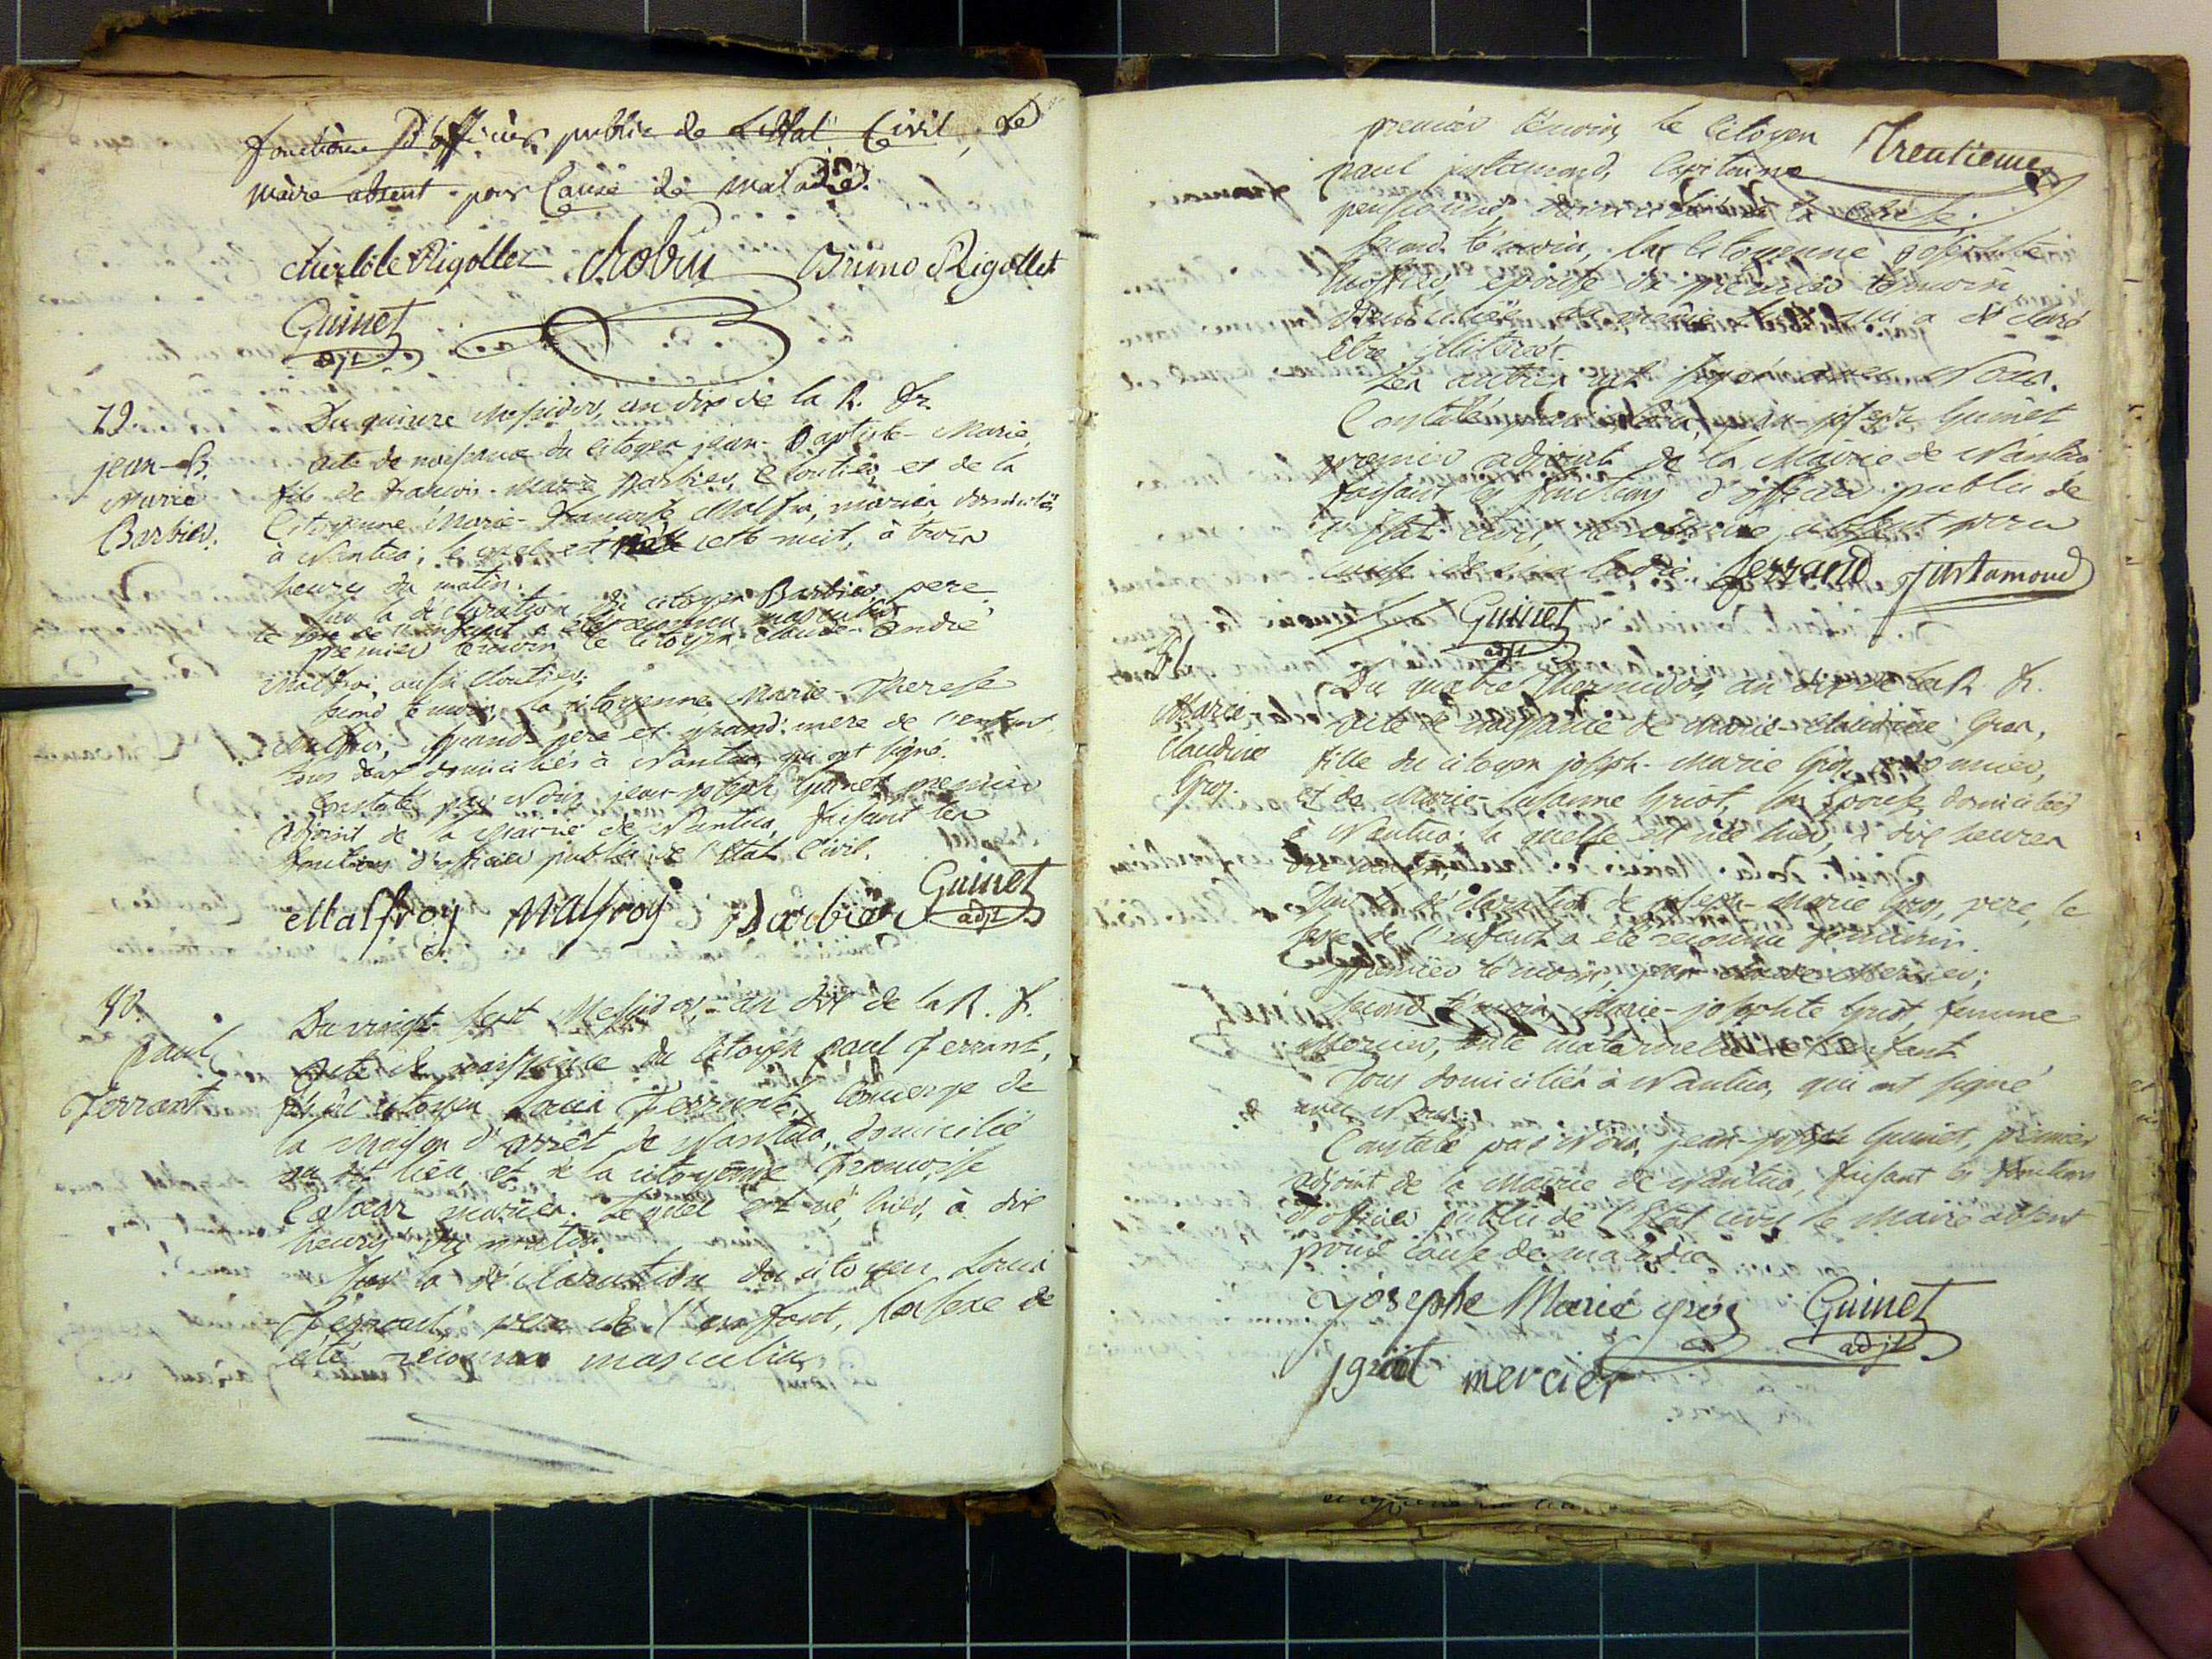 fonctions d'officier public de l'Etat Civil, le
maire absent pour Cause de maladie.
charlote Rigollet Robin Bruno Rigollet
Guinet
adjt
79.
jean-B.
Marie
Barbier.
Du quinze Messidor, an dix de la R. fr.
acte de naissance du citoyen jean-Baptiste-Marie,
fils de francois-Marie Barbier, Cloutier, et de la
Citoyenne Marie-francoise Malfroi, mariés, domiciliés
à Nantua; le quel est né cette nuit, à trois
heures du matin.
Sur la déclaration du citoyen Barbier pere
le sexe de l'enfant a été reconnu masculin
premier témoin, le Citoyen claude-andré
Malfroi, aussi cloutier;
second témoin, la citoyenne Marie-Therese
Malfroi, grand-pere et grand'mere de l'enfant,
tous deux domiciliés à Nantua, qui ont signé.
Constaté par Nous, jean-joseph Guinet premier
adjoint de la Mairie de Nantua, faisant les
fonctions d'officier public de l'Etat Civil.
Malfroy Malfroy Barbier Guinet
adjt
80.
paul
Ferrant
Du vingt-sept Messidor, an dix de la R. f.
Acte de naissance du Citoyen paul Ferrant,
fils du citoyen Louis Ferrant, Concierge de
la maison d'arrêt de Nantua, domicilié
au dit lieu, et de la citoyenne francoise
mariés. Lequel est né, hier, à dix
heures du matin.
Sur la déclaration du citoyen Louis
Ferrant, pere de l'enfant, le sexe de
été reconnu masculin
premier témoin, le Citoyen
Trentieme
paul justamond, Capitaine
pensionné,
second témoin, la Citoyenne josephte
épouse du premier témoin,
domiciliée au même lieu qui a déclaré
être illitérée.
Les autres ont signé avec Nous.
Constaté par Nous, jean-joseph Guinet
premier adjoint de la Mairie de Nantua
faisant les fonctions d'officier public de
l'Etat civil, le maire absent pour
cause de maladie. ferrand justamond
Guinet
adjt
81
Marie
Claudine
Gros.
Du quatre Thermidor, an dix de la R. f.
Acte de naissance de Marie-claudine Gros,
fille du citoyen joseph-Marie Gros,
et de Marie-susanne Griot, son épouse, domiciliés
à Nantua: la quelle est née hier, à dix heures
du matin.
Sur la déclaration de joseph-Marie Gros, pere, le
sexe de l'enfant a été reconnu féminin.
premier témoin, Mercier;
second témoin Marie-josephte Griot, femme
Mercier, tante maternelle de l'enfant
Tous domiciliés à Nantua, qui ont signé
avec Nous.
Constaté par Nous, jean-joseph Guinet, premier
adjoint de la Mairie de Nantua, faisant les fonctions
d'officier public de l'Etat civil le Maire absent
pour cause de maladie
josephe Marie gros Guinet
adjt
jgriot mercier